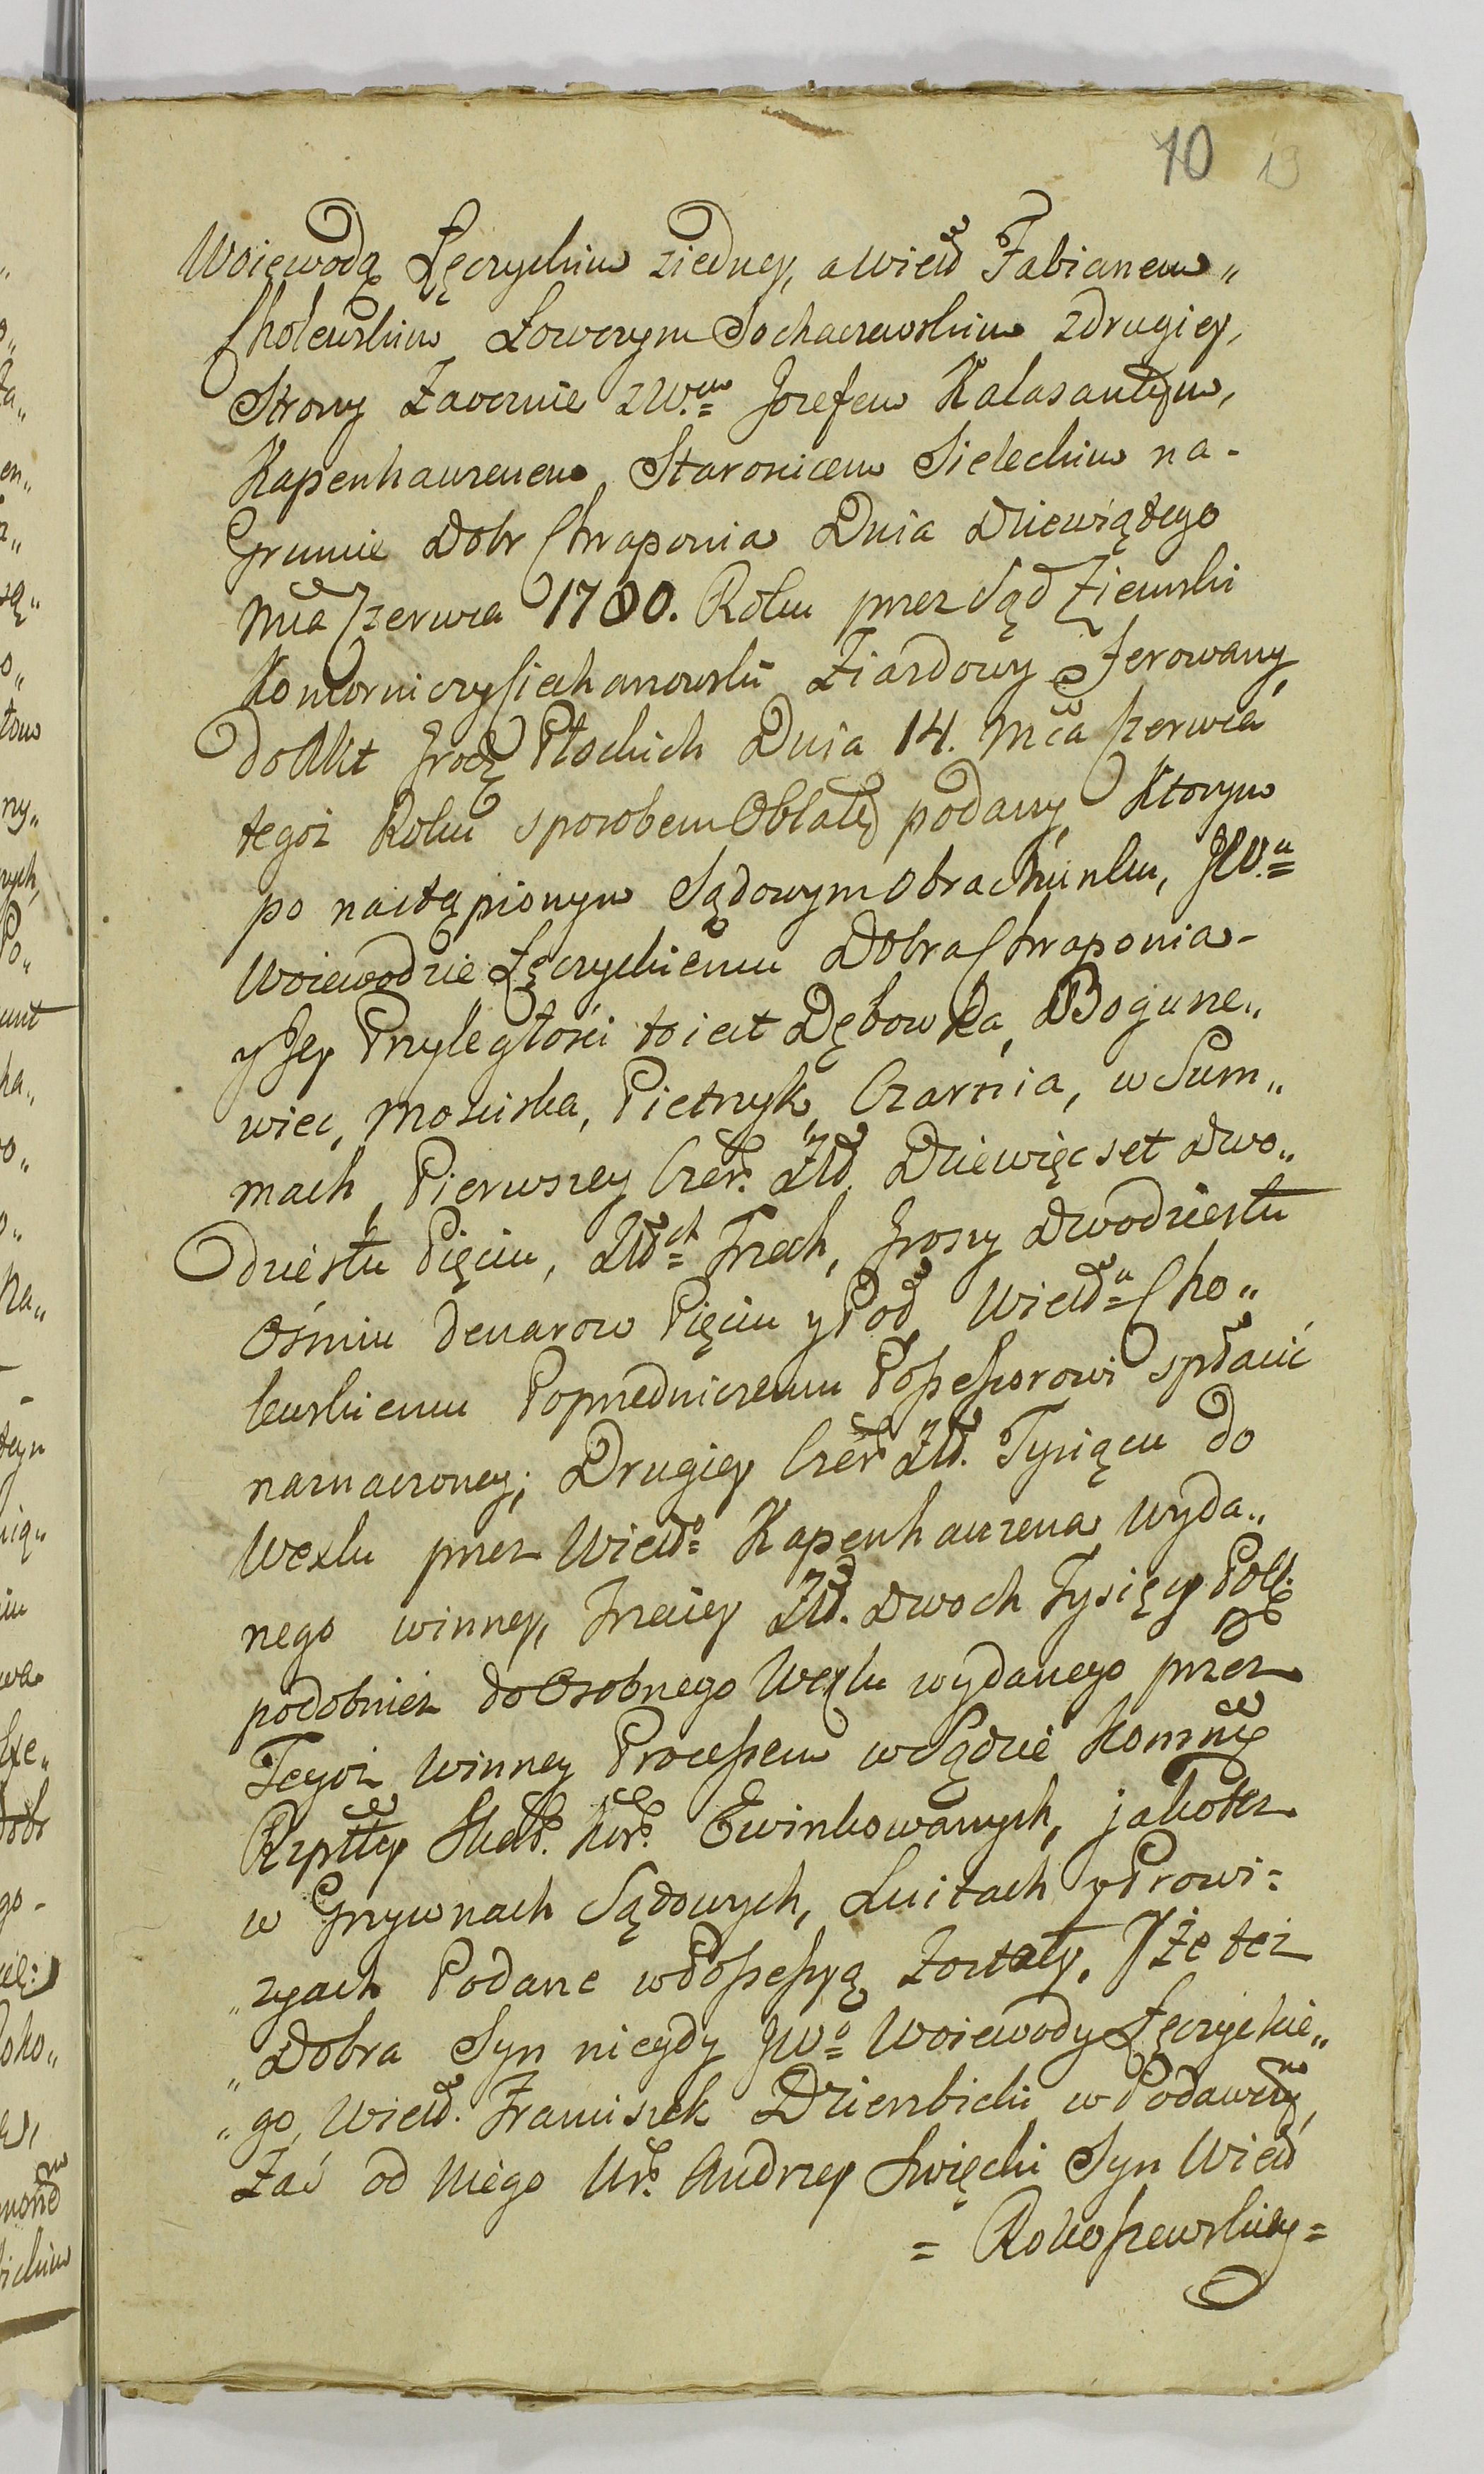 10 13
Woiewodą Łęczyckim ziedney, a Wield Fabianem„
Cholewskim Łowczym Sochaczewskim zdrugiey,
Strony Zaocznie z W.m Jozefem Kalasantym,
Kapenhauzenem, Staroscicem Sieleckim na-
Gruncie Dobr Chraponia Dnia Dziewiątego
Mca Czerwca 1780. Roku przez Sąd Ziemski
Komorniczy Ciechanowski Ziazdowy Ferowany,
do Akt Grodz Płockich Dnia 14. Mca Czerwca
tegoż Roku sposobem Oblaty podany, Ktorym
po nastąpionym Sądowym Obrachunku, JW.u
Woiewodzie Łęczyckiemu Dobra Chraponia-
y Jey Przyległości to iest Dębowka, Bogurze„
wiec, Mościska, Pietrzyk, Czarnia, w Sum„
mach, Pierwszey Czer. Zło. Dziewięcset Dwo„
dziestu Pięciu, Złoch Trzech, Groszy Dwodziestu
Ośmiu denarow Pięciu y Poł Wield.u Cho„
lewskiemu Poprzedniczemu Possessorowi spłacić
naznaczoney; Drugiey Czer. Zło. Tysiącu do
Wexlu przez Wield.o Kapenhauzena Wyda„
nego winney, Trzeciey Zło. Dwoch Tysięcy Poll.
podobnież do Osobnego Wexlu wydanego przez
Tegoż Winney Processem w Sądzie Kommissyi
Rzptty Skar. Kor. Ewinkowanych, jakotez
w Grzywnach Sądowych, Luitach y Prowi=
„zyach Podane w Possessyą Zostały. Y że też
„Dobra Syn niegdy JW.o Woiewody Łęczyckie„
„go, Wield. Franciszek Dzierzbicki w Podawczy,
Zaś od Niego Ur. Andrzey Święcki Syn Wield
= Rokoszewskiey=